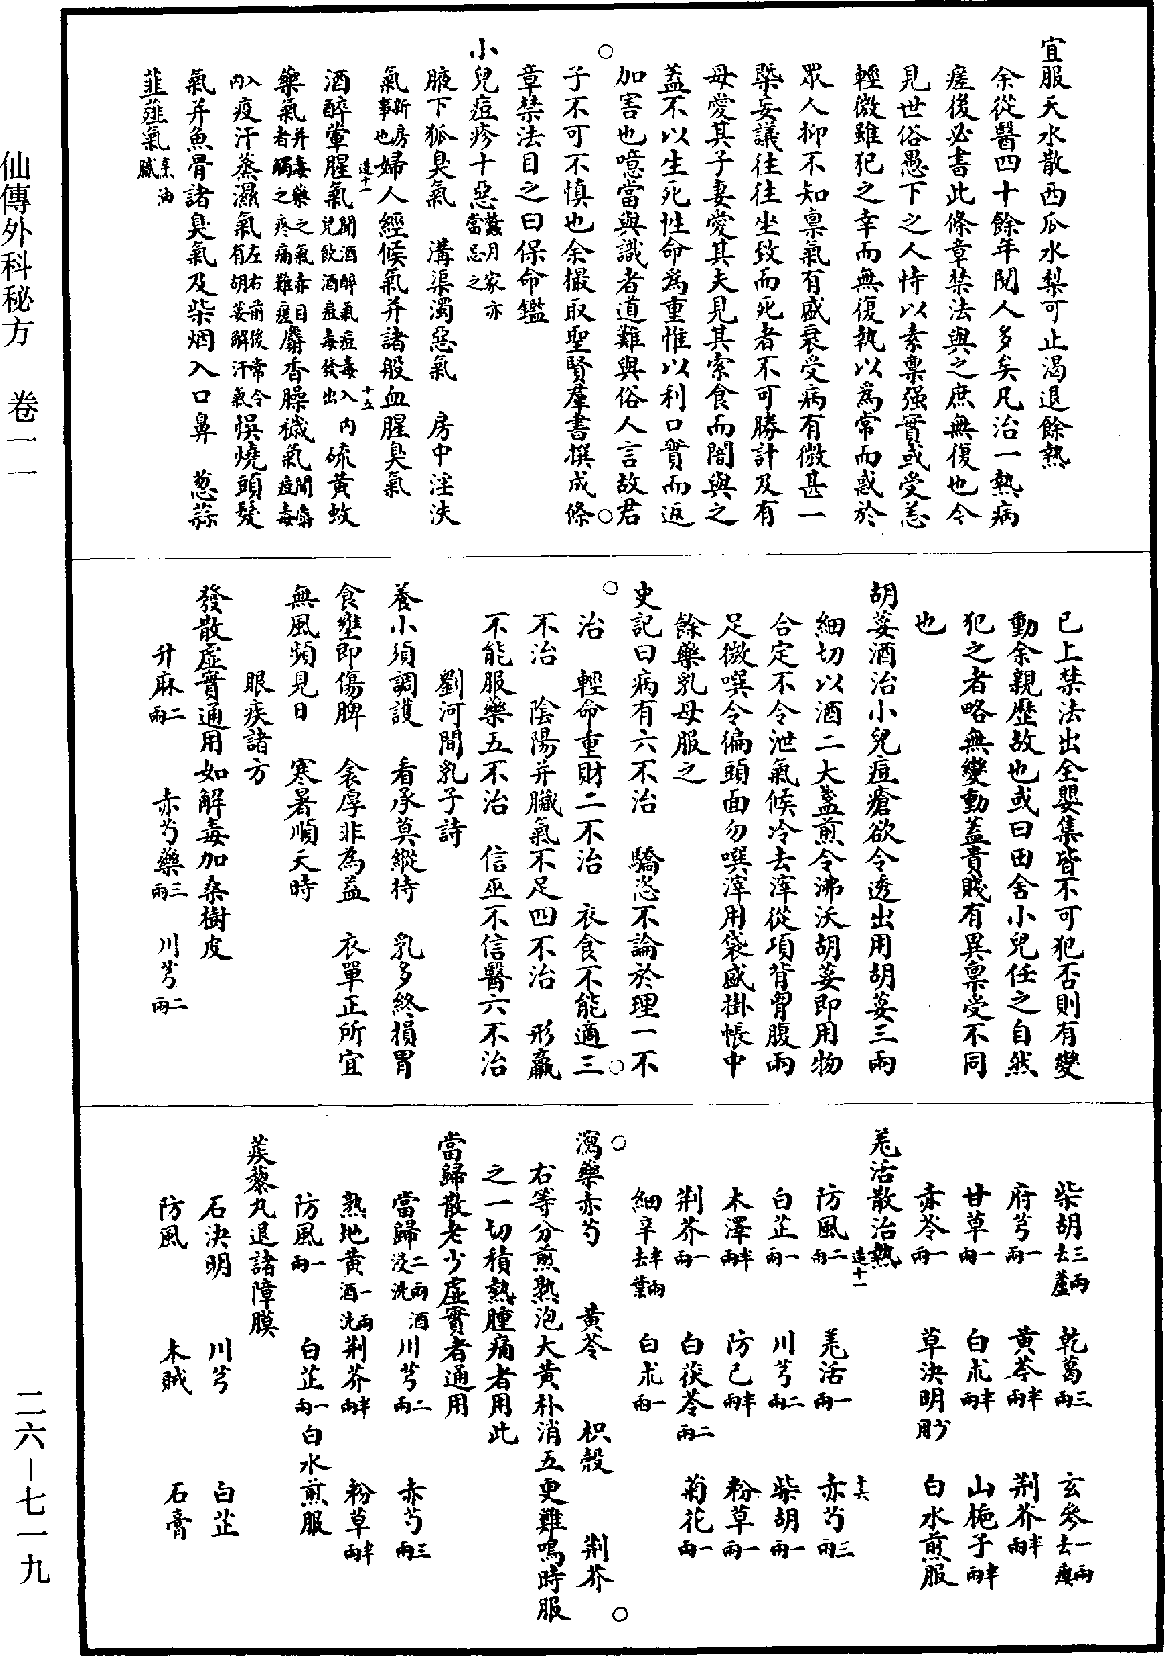 宜服天水散西瓜水梨可止渴退餘熱
余從醫四十餘年閱人多矣凡治一熱病
瘥後必書此條章禁法與之庶無復也今
見世俗愚下之人恃以素稟强實或受恙
輕微雖犯之幸而無復執以爲常而惑於
眾人抑不知稟氣有盛衰受病有微甚一
槩妄議往往坐致而死者不可勝計及有
母愛其子妻愛其夫見其索食而闇與之
蓋不以生死性命爲重惟以利口實而返
加害也噫當與識者道難與俗人言故君
子不可不慎也余撮取聖賢羣書撰成條
章禁法目之曰保命鑑
小兒痘疹十惡蠶月家亦當忌之
腋下狐臭氣 溝渠濁惡氣 房中淫泆
氣斯房事也婦人經候氣并諸般血腥臭氣
酒醉葷腥氣聞酒醉氣痘毒入内兒飲酒痘毒發出硫黃蚊
藥氣并毒藥之氣赤目者觸之疼痛難痘麝香臊穢氣聞麝痘毒
入内疫汗蒸濕氣左右前後常令有胡荽解汗氣悞燒頭髮
氣并魚骨諸臭氣及柴烟入口鼻 葱蒜
韮薤氣烹油膩
已上禁法出全嬰集皆不可犯否則有變
動余親歷故也或曰田舍小兒任之自然
犯之者略無變動蓋貴賤有異稟受不同
也
胡荽酒治小兒痘瘡欲令透出用胡荽三兩
細切以酒二大盞煎令沸沃胡荽即用物
合定不令泄氣候冷去滓從項背胷腹兩
足微噀令徧頭面勿噀滓用袋盛掛帳中
餘藥乳母服之
史記曰病有六不治 驕恣不論於理一不
治 輕命重財二不治 衣食不能適三
不治 陰陽并臟氣不足四不治 形羸
不能服藥五不治 信巫不信醫六不治
劉河間乳子詩
養小須調護 看承莫縱恃 乳多終損胃
食壅即傷脾 衾厚非為益 衣單正所宜
無風頻見日 寒暑順天時
眼疾諸方
發散虛實通用如解毒加桑樹皮
升麻二兩 赤芍藥三兩 川芎二兩
柴胡三兩去蘆 乾葛三兩 玄參一兩去瘼
府芎一兩 黃芩半兩 荆芥半兩
甘草一兩 白朮半兩 山梔子半兩
赤苓一兩 草決明少用 白水煎服
羌活散治熱
防風二兩 羌活一兩 赤芍三兩
白芷一兩 川芎二兩 柴胡一兩
木澤半兩 防已半兩 粉草一兩
荆芥一兩 白茯苓二兩 菊花一兩
細辛半兩去葉 白朮一兩
瀉藥赤芍 黃芩 枳殼 荆芥
右等分煎熟泡大黃朴消五更雞鳴時服
之一切積熱腫痛者用此
當歸散老少虛實者通用
當歸二兩酒浸洗 川芎二兩 赤芍三兩
熟地黃一兩酒洗 荆芥半兩 粉草半兩
防風一兩 白芷一兩 白水煎服
蒺藜丸退諸障膜
石決明 川芎 白芷
防風 木賊 石膏
仙傳外科秘方 卷一一
二六－七一九